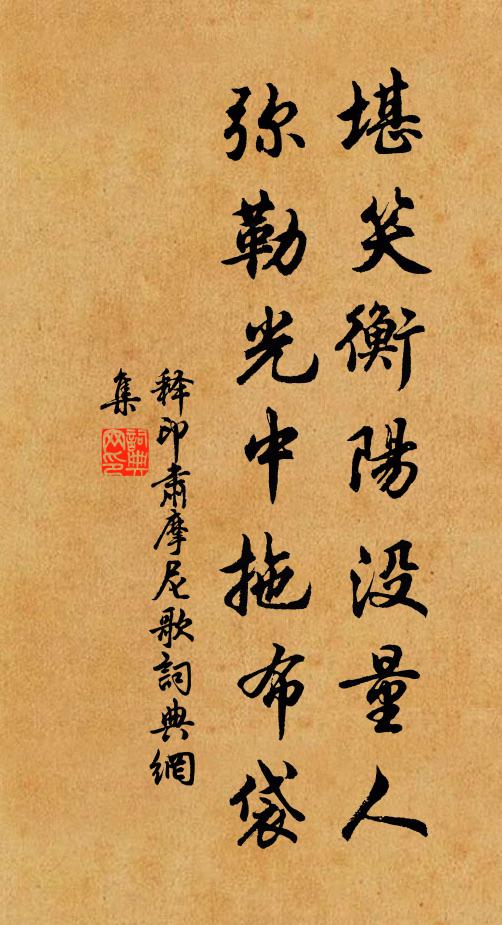 堪笑衡陽没量人
弥勒光中拖布袋
释印肃摩尼歌詞典網
集
詞典網印